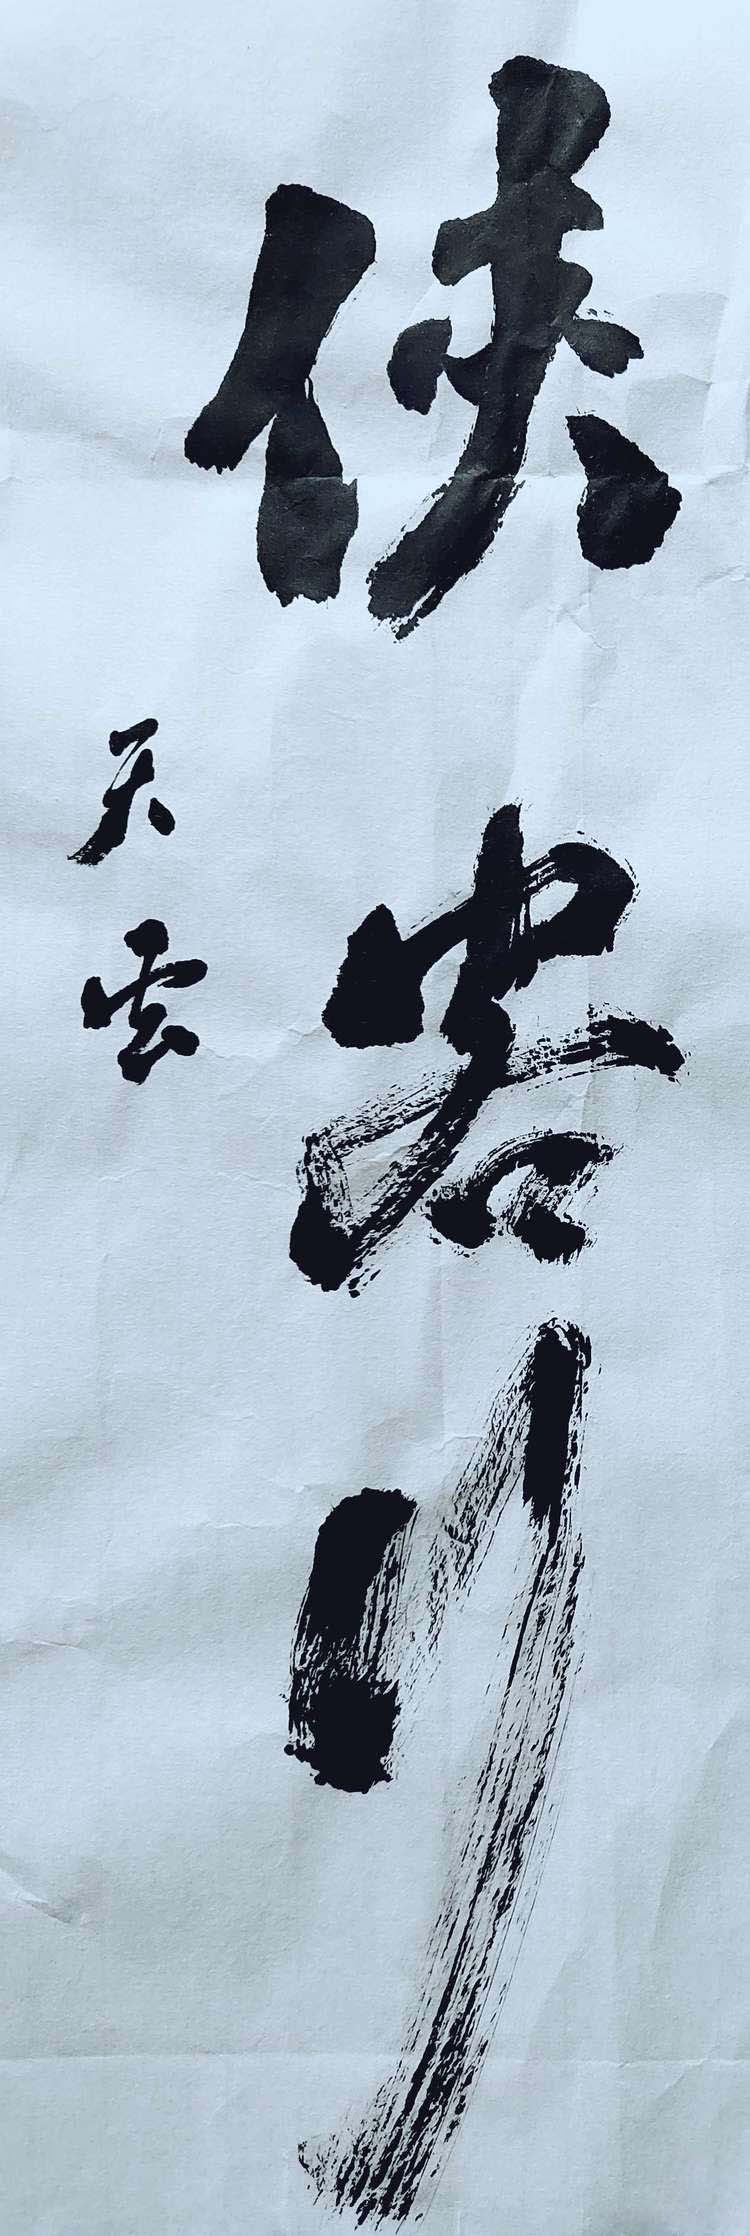 侠客行
天雲